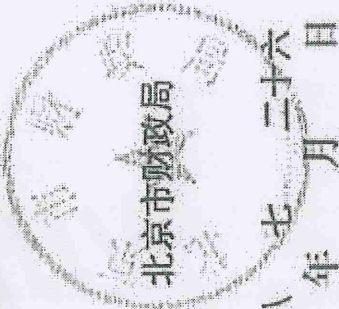 北京市财政局
八年七月二十六日